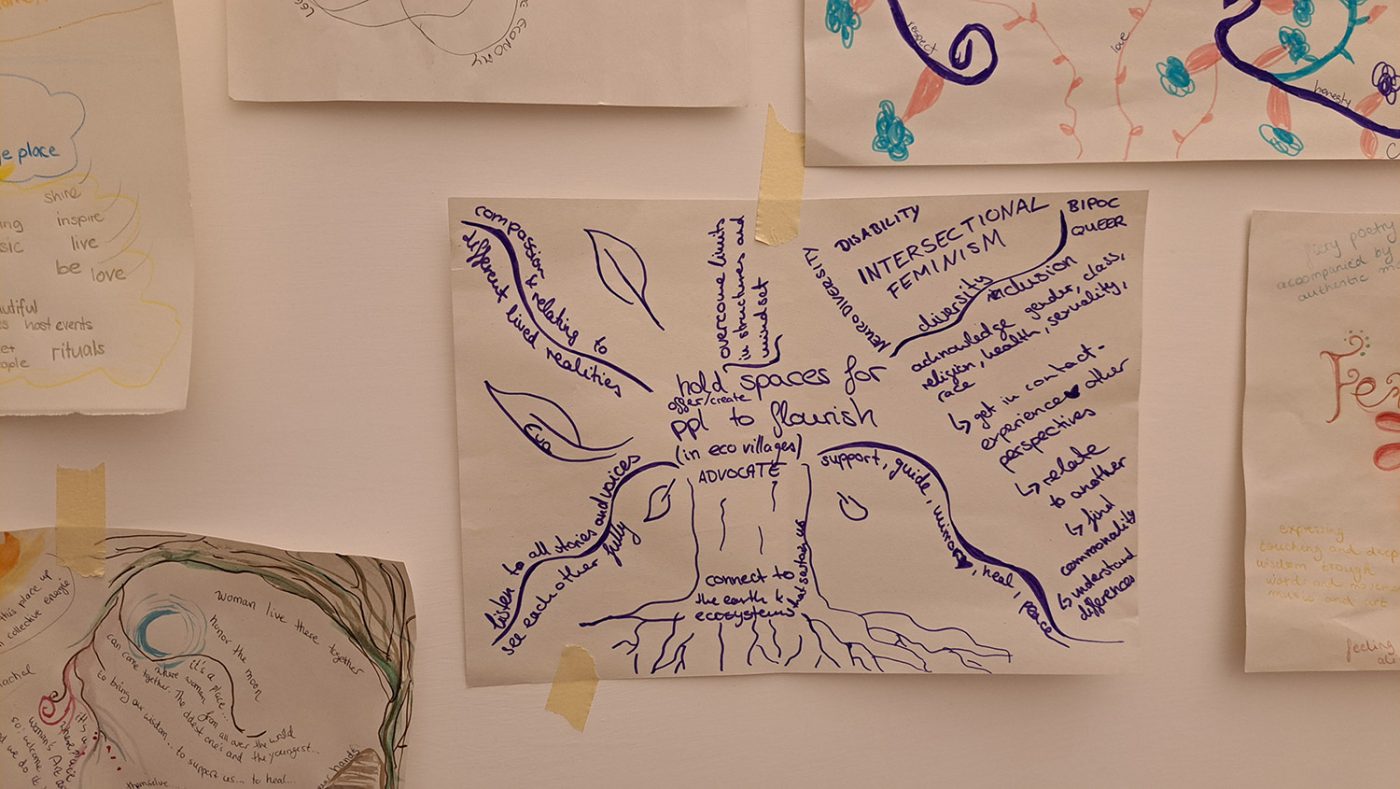 ECONOMY
respect
love
honesty
e place
shine
inspire
live
be love
host events
rituals
compassion & relating to
different lived realities
overcome limits
in structures and
mindset
NEURO DIVERSITY
DISABILITY
INTERSECTIONAL
FEMINISM
BIPOC
QUEER
diversity inclusion
acknowledge gender, class,
religion, health, sexuality,
race
↳ get in contact -
experience other
perspectives
↳ relate
to another
↳ find
commonality
↳ understand
differences
hold spaces for
offer/create
ppl to flourish
(in eco villages)
ADVOCATE
Eva
listen to all stories and voices
see each other fully
support, guide, mirror, heal, peace
connect to
the earth &
ecosystems
that sustain us
fiery poetry
accompanied by
authentic
Fe
expressing
touching and deep
wisdom trough
words and
music and art
feeling
this place up
collective energie
woman live there together
honor the moon
it's a place...
where woman from all over the world
can come together. The oldest one's and the youngest...
to bring our wisdom... to support us... to heal...
themselve